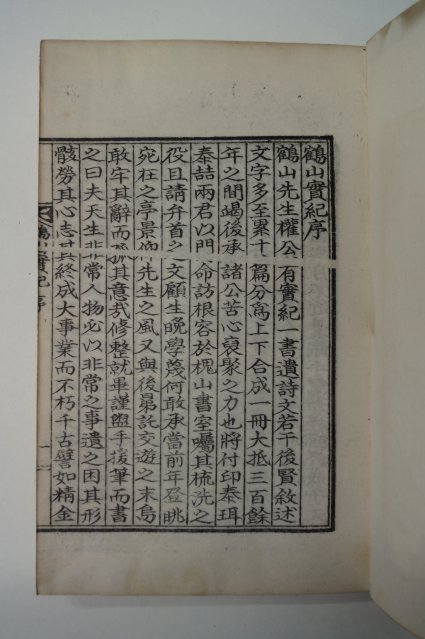 鶴山實紀序
鶴山先生權公有實紀一書遺詩文若干後賢敘述
文字多至累十篇分爲上下合成一冊大抵三百餘
年之間竭後承諸公苦心裒聚之力也將付印泰珥
泰喆兩君以門命訪根容於槐山書室囑其梳洗之
役且請弁首之文顧生晚學蔑何敢承當前年登眺
宛在之亭景仰先生之風又與後昆託交遊之末烏
敢牢其辭而孤其意哉修整就畢謹盥手援筆而書
之曰夫天生非常人物必以非常之事遺之困其形
骸勞其心志終成大事業而不朽千古譬如精金
鶴山實紀序
一